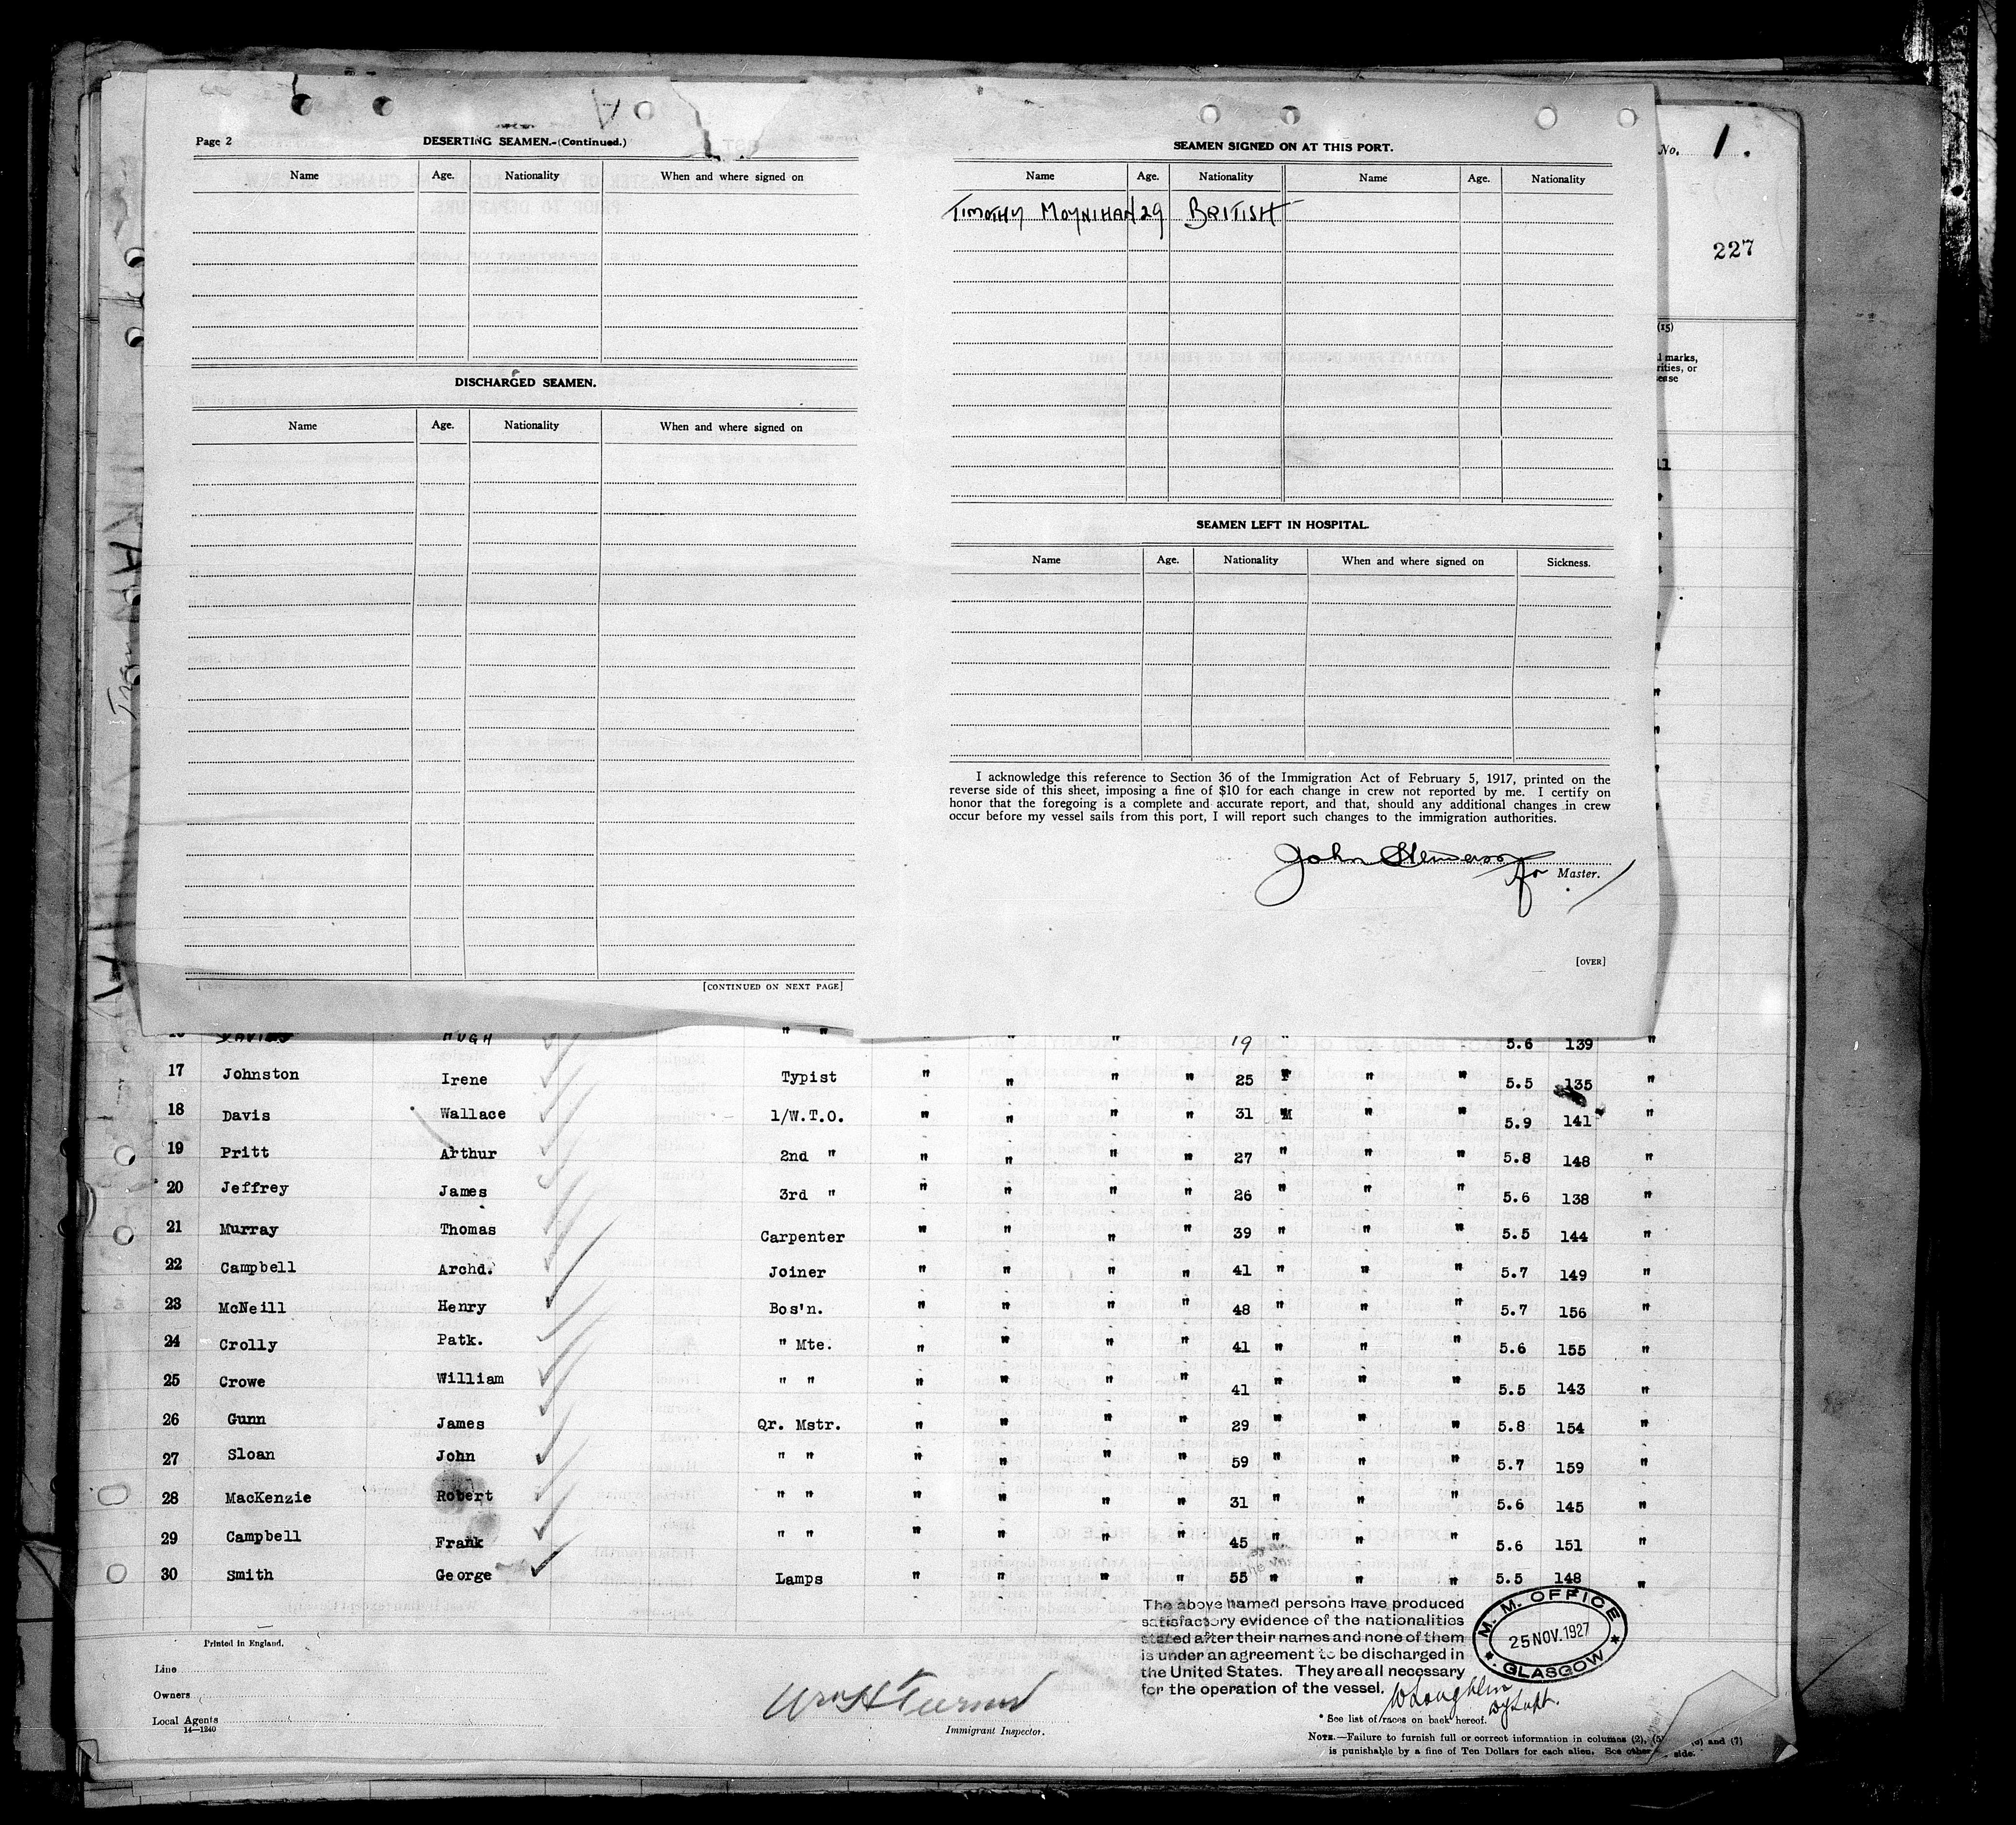 Page 2
DESERTING SEAMEN.-(Continued.)
Name Age. Nationality When and where signed on
DISCHARGED SEAMEN.
Name Age. Nationality When and where signed on
[CONTINUED ON NEXT PAGE]
SEAMEN SIGNED ON AT THIS PORT.
Name Age. Nationality Name Age. Nationality
TIMOTHY MOYNIHAN 29 BRITISH
SEAMEN LEFT IN HOSPITAL.
Name Age. Nationality When and where signed on Sickness.
I acknowledge this reference to Section 36 of the Immigration Act of February 5, 1917, printed on the
reverse side of this sheet, imposing a fine of $10 for each change in crew not reported by me. I certify on
honor that the foregoing is a complete and accurate report, and that, should any additional changes in crew
occur before my vessel sails from this port, I will report such changes to the immigration authorities.
John
for Master.
[OVER]
No. 1.
227
(15)
marks,
or
HUGH " " " " " " 19 " " " 5.6 139 "
17 Johnston Irene Typist " " " " 25 F " " 5.5 135 "
18 Davis Wallace 1/W.T.O. " " " " 31 M " " 5.9 141 "
19 Pritt Arthur 2nd " " " " " 27 " " " 5.8 148 "
20 Jeffrey James 3rd " " " " " 26 " " " 5.6 138 "
21 Murray Thomas Carpenter " " " " 39 " " " 5.5 144 "
22 Campbell Archd. Joiner " " " " 41 " " " 5.7 149 "
23 McNeill Henry Bos'n. " " " " 48 " " " 5.7 156 "
24 Crolly Patk. " Mte. " " " " 41 " " " 5.6 155 "
25 Crowe William " " " " " " 41 " " " 5.5 143 "
26 Gunn James Qr. Mstr. " " " " 29 " " " 5.8 154 "
27 Sloan John " " " " " " 59 " " " 5.7 159 "
28 MacKenzie Robert " " " " " " 31 " " " 5.6 145 "
29 Campbell Frank " " " " " " 45 " " " 5.6 151 "
30 Smith George Lamps " " " " 55 " " " 5.5 148 "
The above named persons have produced
satisfactory evidence of the nationalities
stated after their names and none of them
is under an agreement to be discharged in
the United States. They are all necessary
for the operation of the vessel.
M. M. OFFICE
25 NOV. 1927
GLASGOW
Printed in England.
Line
Owners
Local Agents
14—1240
Wm H Turner
Immigrant Inspector.
W Loughlin
Dy Supt.
* See list of races on back hereof.
NOTE.—Failure to furnish full or correct information in columns (2), (5), (6) and (7)
is punishable by a fine of Ten Dollars for each alien. See other side.